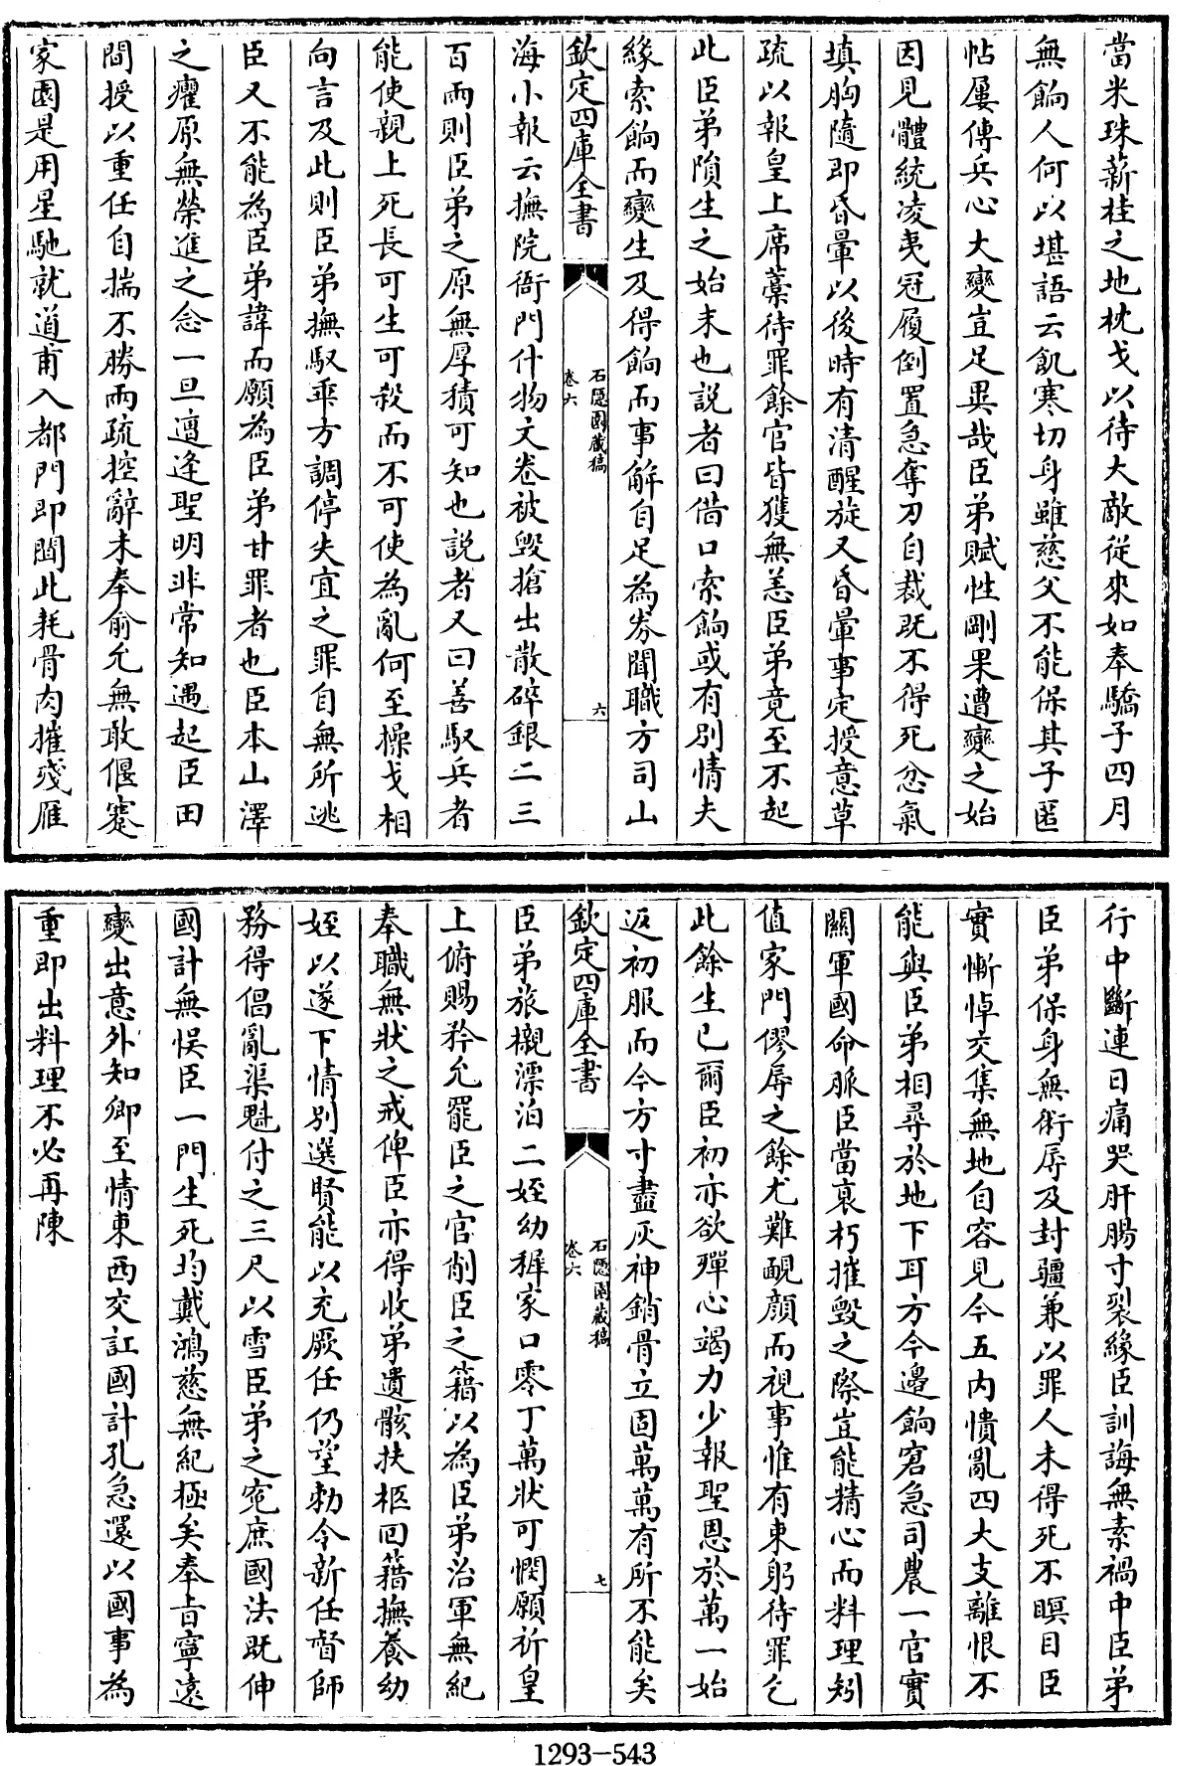 當米珠薪桂之地枕戈以待大敵從來如奉驕子四月
無餉人何以堪語云飢寒切身雖慈父不能保其子匿
帖屢傳兵心大變豈足異哉臣弟賦性剛果遭變之始
因見體統凌夷冠履倒置急奪刀自裁既不得死忿氣
填胸隨即昏暈以後時有清醒旋又昏暈事定授意草
疏以報皇上席藁待罪餘官皆獲無恙臣弟竟至不起
此臣弟隕生之始末也説者曰借口索餉或有別情夫
緣索餉而變生及得餉而事解自足為劵聞職方司山
欽定四庫全書
石隱園藏稿
卷六
六
海小報云撫院衙門什物文卷被毁搶出散碎銀二三
百兩則臣弟之原無厚積可知也説者又曰善馭兵者
能使親上死長可生可殺而不可使為亂何至操戈相
向言及此則臣弟撫馭乖方調停失宜之罪自無所逃
臣又不能為臣弟諱而願為臣弟甘罪者也臣本山澤
之癯原無榮進之念一旦遭逢聖明非常知遇起臣田
間授以重任自揣不勝兩疏控辭未奉俞允無敢偃蹇
家園是用星馳就道甫入都門即聞此耗骨肉摧殘雁
行中斷連日痛哭肝腸寸裂緣臣訓誨無素禍中臣弟
臣弟保身無術辱及封疆兼以罪人未得死不瞑目臣
實慚悼交集無地自容見今五内憒亂四大支離恨不
能與臣弟相尋於地下耳方今邊餉窘急司農一官實
關軍國命脈臣當衰朽摧毁之際豈能精心而料理矧
值家門僇辱之餘尤難靦顔而視事惟有束躬待罪乞
此餘生已爾臣初亦欲殫心竭力少報聖恩於萬一始
返初服而今方寸盡灰神銷骨立固萬萬有所不能矣
欽定四庫全書
石隱園藏稿
卷六
七
臣弟旅櫬漂泊二姪幼穉家口零丁萬狀可憫願祈皇
上俯賜矜允罷臣之官削臣之籍以為臣弟治軍無紀
奉職無狀之戒俾臣亦得收弟遺骸扶柩囘籍撫養幼
姪以遂下情別選賢能以充厥任仍望勅令新任督師
務得倡亂渠魁付之三尺以雪臣弟之寃庶國法既伸
國計無悞臣一門生死均戴鴻慈無紀極矣奉旨寧遠
變出意外知卿至情東西交訌國計孔急還以國事為
重即出料理不必再陳
1293-543